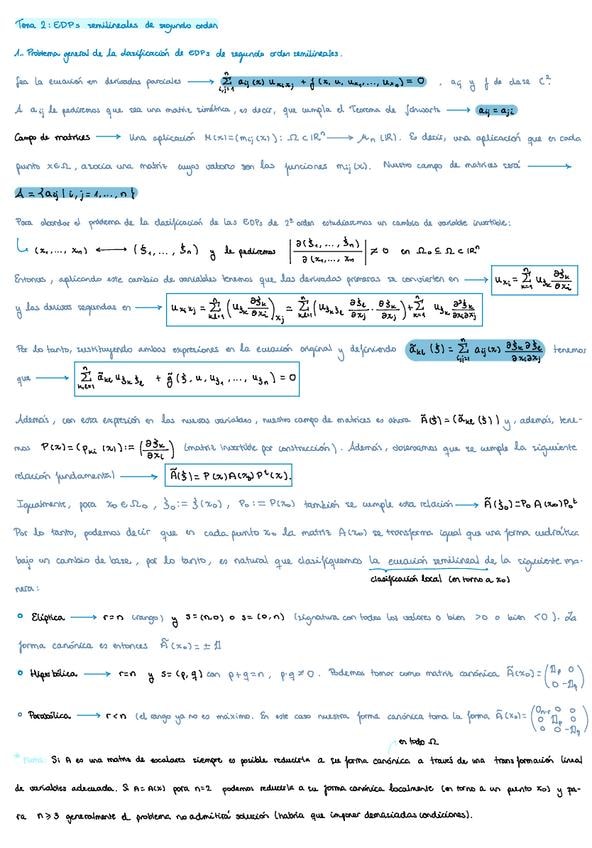 Tema 2: EDPs semilineales de segundo orden
1.- Problema general de la clasificación de EDPs de segundo orden semilineales.
Sea la ecuación en derivadas parciales ⟶ ∑_{i,j=1}^n a_ij(x) u_{x_i x_j} + f(x, u, u_{x_1}, ..., u_{x_n}) = 0 , a_ij y f de clase C².
A a_ij le pediremos que sea una matriz simétrica, es decir, que cumpla el Teorema de Schwartz ⟶ a_ij = a_ji
Campo de matrices ⟶ Una aplicación M(x)=(m_ij(x)): Ω⊂ℝⁿ ⟶ M_n(ℝ). Es decir, una aplicación que en cada
punto x∈Ω, asocia una matriz cuyos valores son las funciones m_ij(x). Nuestro campo de matrices será ⟶
A = {a_ij | i,j=1,...,n}
Para abordar el problema de la clasificación de las EDPs de 2º orden estudiaremos un cambio de variable invertible:
↳ (x_1,...,x_n) ⟷ (ξ_1,...,ξ_n) y le pediremos |∂(ξ_1,...,ξ_n)/∂(x_1,...,x_n| ≠ 0 en Ω_0 ⊆ Ω ⊂ ℝⁿ
Entonces, aplicando este cambio de variables tenemos que las derivadas primeras se convierten en ⟶ u_{x_i} = ∑_{k=1}^n u_{ξ_k} ∂ξ_k/∂x_i
y las derivas segundas en ⟶ u_{x_i x_j} = ∑_{k,l=1}^n (u_{ξ_k} ∂ξ_k/∂x_i)_{x_j} = ∑_{k,l=1}^n (u_{ξ_k ξ_l} ∂ξ_l/∂x_j · ∂ξ_k/∂x_i) + ∑_{k=1}^n u_{ξ_k} ∂²ξ_k/∂x_i∂x_j
Por lo tanto, sustituyendo ambas expresiones en la ecuación original y definiendo ã_kl(ξ) = ∑_{i,j=1}^n a_ij(x) ∂ξ_k ∂ξ_l/∂x_i ∂x_j tenemos
que ⟶ ∑_{k,l=1}^n ã_kl u_{ξ_k ξ_l} + g̃(ξ, u, u_{ξ_1}, ..., u_{ξ_n}) = 0
Además, con esta expresión en las nuevas variables, nuestro campo de matrices es ahora Ã(ξ)=(ã_kl(ξ)) y, además, tene-
mos P(x)=(p_ki(x)):=(∂ξ_k/∂x_i) (matriz invertible por construcción). Además, observamos que se cumple la siguiente
relación fundamental ⟶ Ã(ξ) = P(x)A(x)Pᵗ(x).
Igualmente, para x_0∈Ω_0, ξ_0:=ξ(x_0), P_0:=P(x_0) también se cumple esta relación ⟶ Ã(ξ_0)=P_0 A(x_0)P_0ᵗ
Por lo tanto, podemos decir que en cada punto x_0 la matriz A(x_0) se transforma igual que una forma cuadrática
bajo un cambio de base, por lo tanto, es natural que clasifiquemos la ecuación semilineal de la siguiente ma-
clasificación local (en torno a x_0)
nera:
° Elíptica ⟶ r=n (rango) y s=(n,0) o s=(0,n) (signatura con todos los valores o bien >0 o bien <0). La
forma canónica es entonces Ã(x_0) = ±𝟙
° Hiperbólica ⟶ r=n y s=(p,q) con p+q=n, p·q≠0. Podemos tomar como matriz canónica Ã(x_0)=(𝟙_p 0 / 0 -𝟙_q)
° Parabólica ⟶ r<n (el rango ya no es máximo. En este caso nuestra forma canónica toma la forma Ã(x_0)=(0_{n-r} 0 0 / 0 𝟙_p 0 / 0 0 -𝟙_q)
en todo Ω
* Nota: Si A es una matriz de escalares siempre es posible reducirla a su forma canónica a través de una transformación lineal
de variables adecuada. Si A=A(x) para n=2 podemos reducirla a su forma canónica localmente (en torno a un punto x_0) y pa-
ra n≥3 generalmente el problema no admitirá solución (habría que imponer demasiadas condiciones).